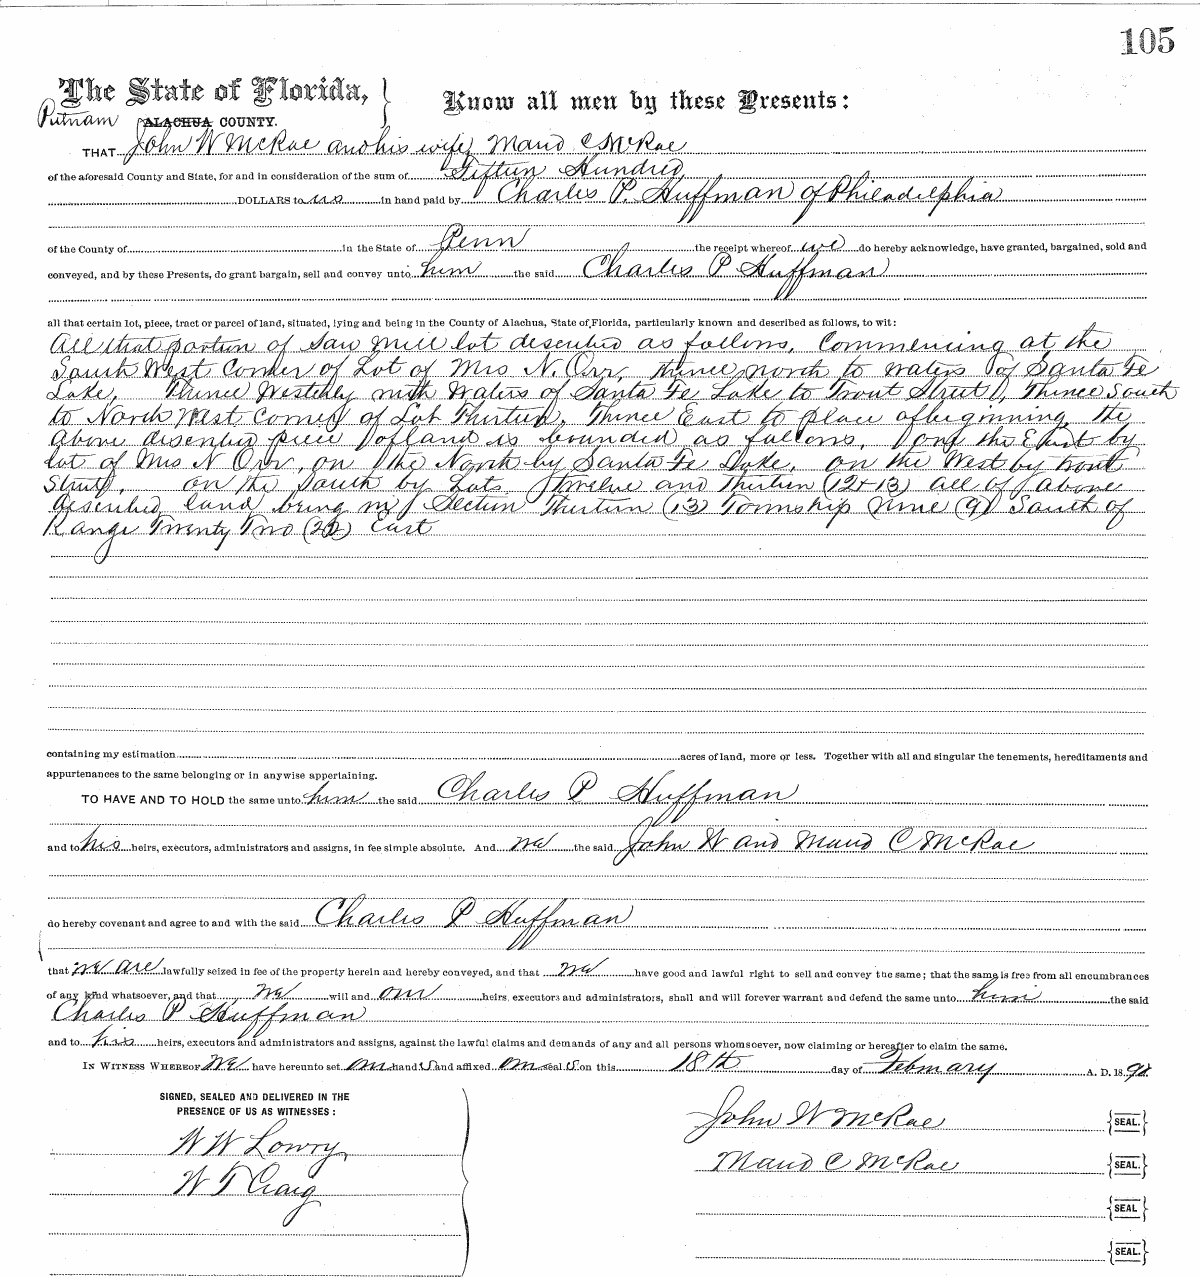 105
The State of Florida,
Know all men by these Presents:
Putnam ALACHUA COUNTY.
THAT John W McRae and his wife Maud C McRae
of the aforesaid County and State, for and in consideration of the sum of Fifteen Hundred
DOLLARS to us in hand paid by Charles P. Huffman of Philadelphia
of the County of in the State of Penn the receipt whereof we do hereby acknowledge, have granted, bargained, sold and
conveyed, and by these Presents, do grant bargain, sell and convey unto him the said Charles P Huffman
all that certain lot, piece, tract or parcel of land, situated, lying and being in the County of Alachua, State of Florida, particularly known and described as follows, to wit:
All that portion of Saw Mill lot described as follows, Commencing at the
South West Corner of Lot of Mrs N. Orr, thence north to waters of Santa Fe
Lake, Thence Westerly with Waters of Santa Fe Lake to Trout Street, Thence South
to North West Corner of Lot Thirteen, Thence East to place of beginning, the
above described piece of land is bounded as follows, on the East by
lot of Mrs N Orr, on the North by Santa Fe Lake, on the West by Trout
Street, on the South by Lots Twelve and Thirteen (12+13) all of above
described land being in Section Thirteen (13) Township Nine (9) South of
Range Twenty Two (22) East
containing my estimation acres of land, more or less. Together with all and singular the tenements, hereditaments and
appurtenances to the same belonging or in anywise appertaining.
TO HAVE AND TO HOLD the same unto him the said Charles P Huffman
and to his heirs, executors, administrators and assigns, in fee simple absolute. And we the said John W and Maud C McRae
do hereby covenant and agree to and with the said Charles P Huffman
that we are lawfully seized in fee of the property herein and hereby conveyed, and that we have good and lawful right to sell and convey the same; that the same is free from all encumbrances
of any kind whatsoever, and that we will and our heirs, executors and administrators, shall and will forever warrant and defend the same unto him the said
Charles P Huffman
and to his heirs, executors and administrators and assigns, against the lawful claims and demands of any and all persons whomsoever, now claiming or hereafter to claim the same.
IN WITNESS WHEREOF We have hereunto set our hand s and affixed our seal s on this 18th day of February A. D. 18
SIGNED, SEALED AND DELIVERED IN THE
PRESENCE OF US AS WITNESSES:
W W Lowry
W T Craig
John W McRae SEAL.
Maud C McRae SEAL.
SEAL
SEAL.